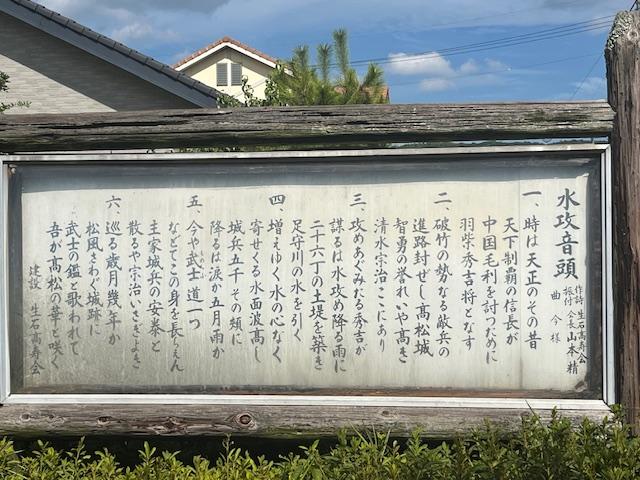 水攻音頭
作詩 生石高寿会
振付 会長 山本 精
曲 今様
一、時は天正のその昔
天下制覇の信長が
中国毛利を討つために
羽柴秀吉将となす
二、破竹の勢なる敵兵の
進路封ぜし高松城
智勇の誉れいや高き
清水宗治ここにあり
三、攻めあぐみたる秀吉が
謀るは水攻め降る雨に
二十六丁の土堤を築き
足守川の水を引く
四、増えゆく水の心なく
寄せくる水面波高し
城兵五千その頬に
降るは涙か五月雨か
五、今や武士道一つ
などてこの身を長らえん
主家城兵の安泰と
散るや宗治いさぎよき
六、巡る歳月幾年か
松風さわぐ城跡に
武士の鑑と歌われて
吾が高松の華と咲く
建設 生石高寿会